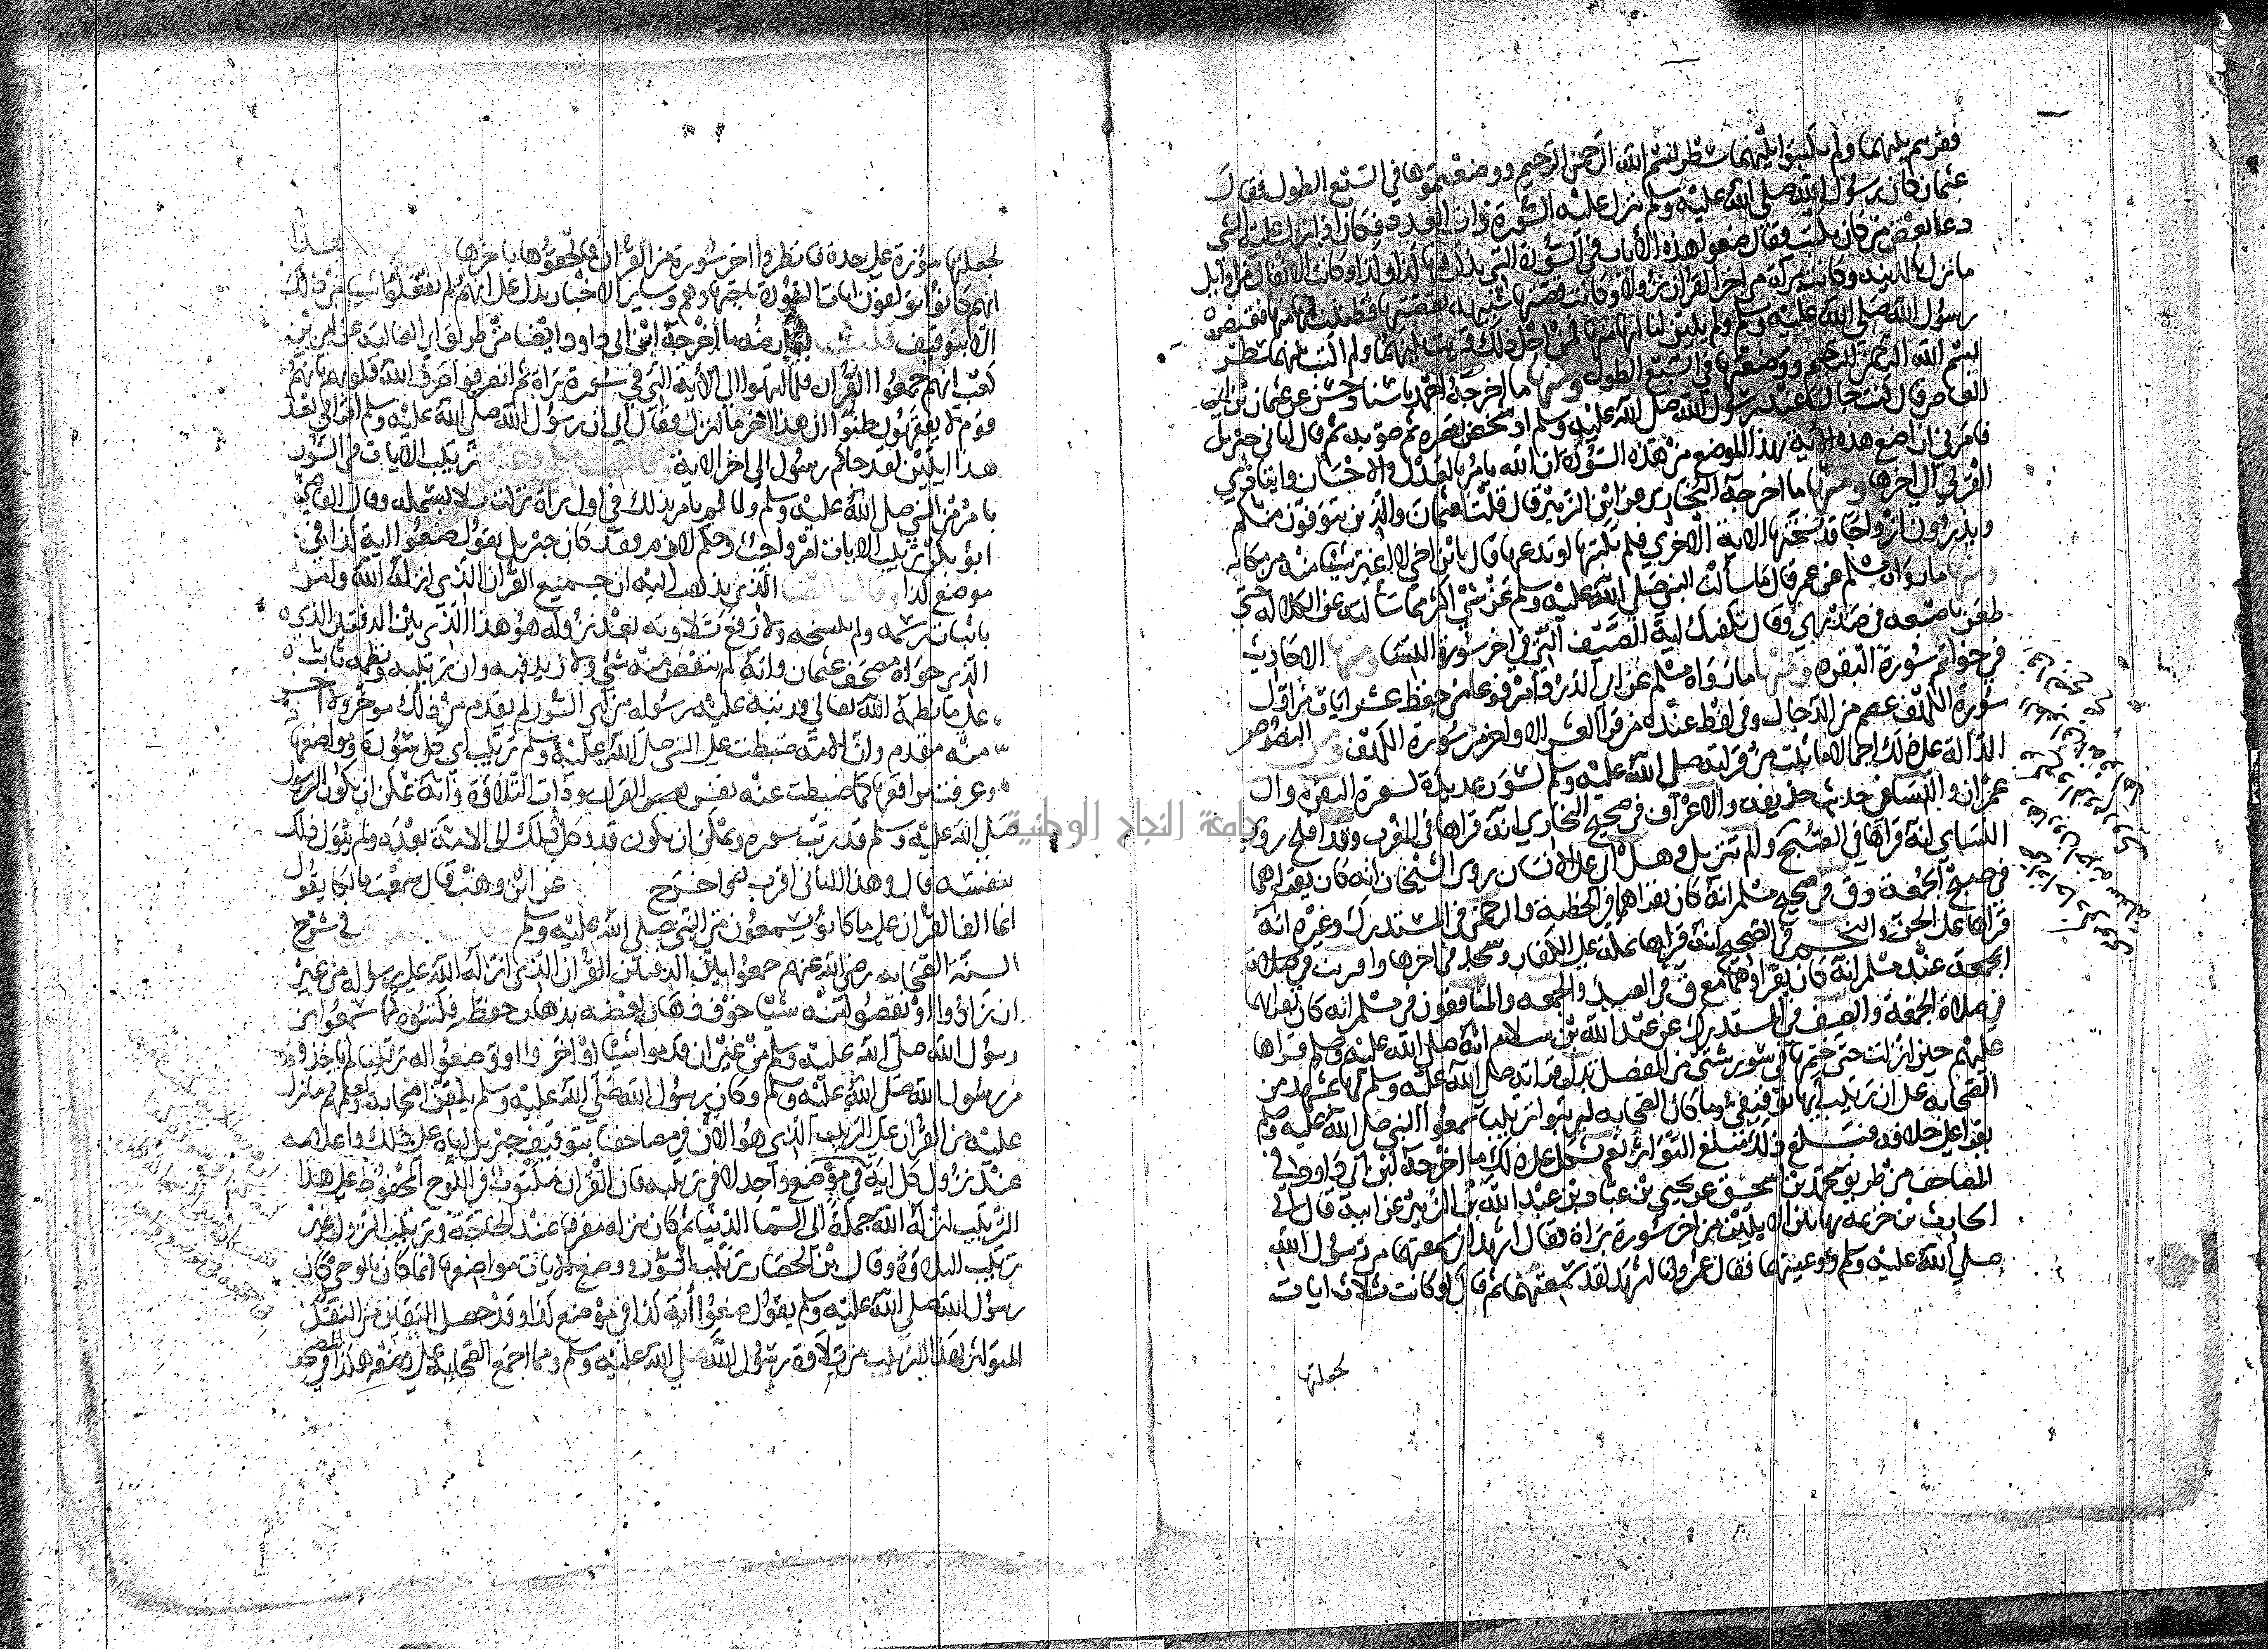 فقرنتم بينهما ولم تكتبوا بينهما سطر بسم الله الرحمن الرحيم ووضعتموها في السبع الطول فقال
عثمان كان رسول الله صلى الله عليه وسلم تنزل عليه السورة ذوات العدد فكان اذا نزل عليه الشي
دعا بعض من كان يكتب فيقول ضعوا هذه الايات في السورة التي يذكر فيها كذا وكذا وكانت الانفال من اوايل
ما نزل بالمدينة وكانت براة من اخر القران نزولا وكانت قصتها شبيهة بقصتها فظننت انها منها فقبض
رسول الله صلى الله عليه وسلم ولم يبين لنا انها منها فمن اجل ذلك قرنت بينهما ولم اكتب بينهما سطر
بسم الله الرحمن الرحيم ووضعتها في السبع الطول ومنها ما اخرجه احمد باسناد حسن عن عثمان بن ابي
العاص قال كنت جالسا عند رسول الله صلى الله عليه وسلم اذ شخص ببصره ثم صوبه ثم قال اتاني جبريل
فامرني ان اضع هذه الاية بهذا الموضع من هذه السورة ان الله يامر بالعدل والاحسان وايتا ذي
القربى الى اخرها ومنها ما اخرجه البخاري عن ابن الزبير قال قلت لعثمان والذين يتوفون منكم
ويذرون ازواجا قد نسختها الاية الاخرى فلم تكتبها او تدعها قال يا بن اخي لا اغير شيئا منه من مكانه
ومنها ما رواه مسلم عن عمر قال ما سألت النبي صلى الله عليه وسلم عن شي اكثر مما سألته عن الكلالة حتى
طعن باصبعه في صدري وقال تكفيك اية الصيف التي في اخر سورة النسا ومنها الاحاديث
في خواتم سورة البقره ومنها ما رواه مسلم عن ابي الدردا مرفوعا من حفظ عشر ايات من اول
سورة الكهف عصم من الدجال وفي لفظ عنده من قرا العشر الاواخر من سورة الكهف ومن النصوص
الدالة على ذلك اجمالا ما ثبت من قراته صلى الله عليه وسلم لسور عديدة لسورة البقره وال
عمران والنسا في حديث حذيفه والاعراف في صحيح البخاري انه قراها في المغرب وقد افلح روى
النساي انه قراها في الصبح والم تنزيل وهل اتى على الانسان روى الشيخان انه كان يقراهما
في صبح الجمعة وق في صحيح مسلم انه كان يقراها في الخطبة والرحمن في المستدرك وغيره انه
قراها على الجن والنجم في الصحيح انه قراها بمكة على الكفار وسجد في اخرها واقتربت في صلاة
الجمعة عند مسلم انه كان يقراهما مع ق في العيد والجمعه والمنافقون في مسلم انه كان يقرابهما
في صلاة الجمعة والصف في المستدرك عن عبد الله بن سلام انه صلى الله عليه وسلم قراها
عليهم حين انزلت حتى ختمها في سور شتى من المفصل تدل قراته صلى الله عليه وسلم لها بمشهد من
الصحابه على ان ترتيب ايها توقيفي وما كان الصحابه ليرتبوا ترتيبا سمعوا النبي صلى الله عليه وسلم
يقرا على خلافه فبلغ ذلك مبلغ التواتر نعم يشكل على ذلك ما اخرجه ابن ابي داود في
المصاحف من طريق محمد بن اسحق عن يحيى بن عباد بن عبد الله بن الزبير عن ابيه قال اتى
الحارث بن خزيمه بهاتين الايتين من اخر سورة براة فقال اشهد اني سمعتهما من رسول الله
صلى الله عليه وسلم ووعيتهما فقال عمر وانا اشهد لقد سمعتهما ثم قال لو كانت ثلاث ايات
لجعلتها
لجعلتها سورة على حدة فانظروا اخر سورة من القران فالحقوها باخرها هذا
انهم كانوا يولفون ايات السورة باجتهادهم وساير الاخبار يدل على انهم لم يفعلوا شيا من ذلك
الا بتوقيف قلت يعارضه ما اخرجه ابن ابي داود ايضا من طريق ابي العالية عن ابي بن
كعب انهم جمعوا القران فلما انتهوا الى الاية التي في سورة براة ثم انصرفوا صرف الله قلوبهم بانهم
قوم لا يفقهون ظنوا ان هذا اخر ما انزل فقال ابي ان رسول الله صلى الله عليه وسلم اقراني بعد
هذا ايتين لقد جاكم رسول الى اخر الاية ترتيب الايات في السور
بامر من النبي صلى الله عليه وسلم ولما لم يامر بذلك في اول براة تركت بلا بسمله وقال القاضي
ابو بكر ترتيب الايات امر واجب وحكم لازم فقد كان جبريل يقول ضعوا اية كذا في
موضع كذا وقال ايضا الذي نذهب اليه ان جميع القران الذي انزله الله وامر
باثبات رسمه ولم ينسخه ولا رفع تلاوته بعد نزوله هو هذا الذي بين الدفتين الذي
الذي حواه مصحف عثمان وانه لم ينقص منه شي ولا زيد فيه وان ترتيبه ونظمه ثابت
على ما نظمه الله تعالى ورتبه عليه رسوله من اي السور لم يقدم من ذلك موخر ولا اخر
منه مقدم وان الامة ضبطت عن النبي صلى الله عليه وسلم ترتيب اي كل سورة ومواضعها
وعرفت مواقعها كما ضبطت عنه نفس القران وذات التلاوة وانه يمكن ان يكون الرسول
صلى الله عليه وسلم قد رتب سوره ويمكن ان يكون قد وكل ذلك الى الامة بعده ولم يتول ذلك
بنفسه قال وهذا الثاني اقرب واخرج عن ابن وهب قال سمعت مالكا يقول
انما الف القران على ما كانوا يسمعون من النبي صلى الله عليه وسلم في شرح
السنة الصحابه رضي الله عنهم جمعوا بين الدفتين القران الذي انزله الله على رسوله من غير
ان زادوا او نقصوا منه شيئا خوف ذهاب بعضه بذهاب حفظته فكتبوه كما سمعوا من
رسول الله صلى الله عليه وسلم من غير ان قدموا شيئا او اخروا او وضعوا له ترتيبا لم ياخذوه
من رسول الله صلى الله عليه وسلم وكان رسول الله صلى الله عليه وسلم يلقن اصحابه ويعلمهم ما نزل
عليه من القران على الترتيب الذي هو الان في مصاحفنا بتوقيف جبريل اياه على ذلك واعلامه
عند نزول كل اية في موضع واحد لا في ترتيبه فان القران مكتوب في اللوح المحفوظ على هذا
الترتيب انزله الله جملة الى السما الدنيا ثم كان ينزله مفرقا عند الحاجة وترتيب النزول غير
ترتيب التلاوة وقال بن الحصار ترتيب السور ووضع الايات مواضعها انما كان بالوحي كان
رسول الله صلى الله عليه وسلم يقول ضعوا اية كذا في موضع كذا وقد حصل اليقين من النقل
المتواتر بهذا الترتيب من تلاوة رسول الله صلى الله عليه وسلم ومما اجمع الصحابة على وضعه هكذا في المصحف
جامعة النجاح الوطنية